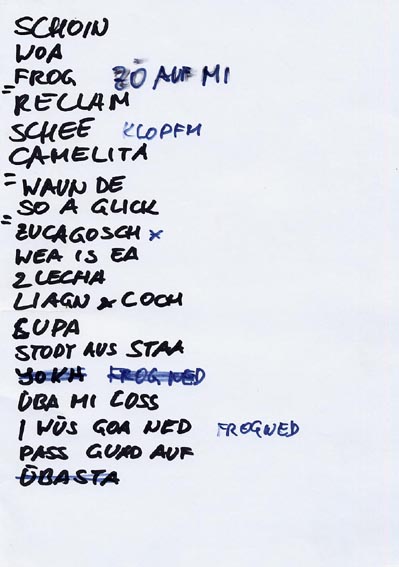 SCHOIN
WOA
FROG ZÖ AUF MI
= RECLAM
SCHEE KLOPFM
CAMELITA
= WAUN DE
SO A GLICK
= ZUCAGOSCH x
WEA IS EA
2 LECHA
LIAGN & COCH
SUPA
STODT AUS STAA
FROG NED
ÜBA MI COSS
I WÜS GOA NED FROGNED
PASS GUAD AUF
ÜBASTA